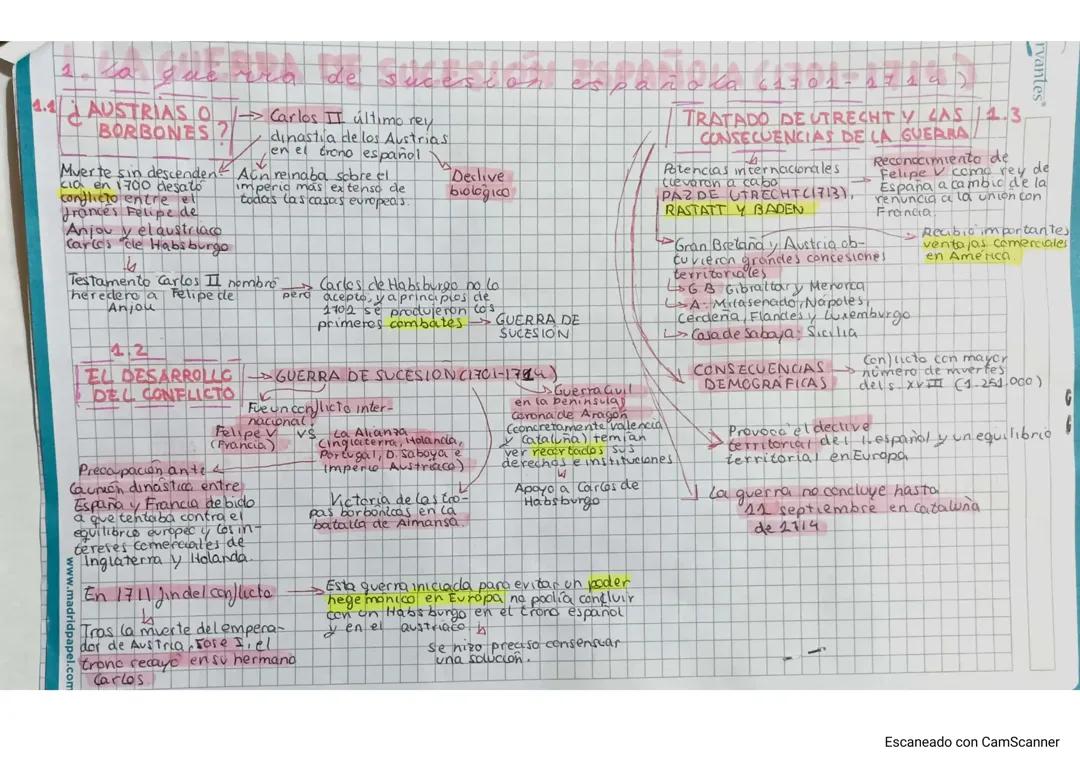 1. La guerra de sucesión española (1701-1714)
1.1 ¿AUSTRIAS O
BORBONES?
Carlos II último rey
dinastía de los Austrias
en el trono español
Muerte sin descenden
cia en 1700 desató
conflicto entre el
francés Felipe de
Anjou y el austriaco
Carlos de Habsburgo
Aún reinaba sobre el
imperio más extenso de
todas las casas europeas.
Declive
biológico
Testamento Carlos II nombró
heredero a Felipe de
Anjou
pero
Carlos de Habsburgo no lo
aceptó, y a principios de
1702 se produjeron los
primeros combates
GUERRA DE
SUCESIÓN
1.2
EL DESARROLLO
DEL CONFLICTO
GUERRA DE SUCESION (1701-1714)
Fue un conflicto inter-
nacional
Felipe V vs La Alianza
(Francia)
(Inglaterra, Holanda,
Portugal, D. Saboya e
Imperio Austriaco)
Guerra Civil
en la península
Corona de Aragón
(concretamente Valencia
y Cataluña) temían
ver recortados sus
derechos e instituciones
Apoyo a Carlos de
Habsburgo
Preocupación ante
la unión dinástica entre
España y Francia debido
a que tentaba contra el
equilibrio europeo y los in-
tereses comerciales de
Inglaterra y Holanda.
Victoria de las tro-
pas borbónicas en la
batalla de Almansa.
En 1711 fin del conflicto
Tras la muerte del empera-
dor de Austria, Jose I, el
trono recayó en su hermano
Carlos
Esta guerra iniciada para evitar un poder
hegemónico en Europa no podía concluir
con un Habsburgo en el trono español
y en el austriaco
se hizo preciso consensuar
una solución.
TRATADO DE UTRECHT Y LAS 1.3
CONSECUENCIAS DE LA GUERRA
Potencias internacionales
llevaron a cabo
PAZ DE UTRECHT (1713),
RASTATT Y BADEN
Reconocimiento de
Felipe V como rey de
España a cambio de la
renuncia a la unión con
Francia.
Gran Bretaña y Austria ob-
tuvieron grandes concesiones
territoriales
Recibió importantes
ventajas comerciales
en América.
G.B: Gibraltar y Menorca
A: Milasenado, Nápoles,
Cerdeña, Flandes y Luxemburgo
Casa de Saboya: Sicilia
CONSECUENCIAS
DEMOGRÁFICAS
Conflicto con mayor
número de muertes
del s. XVIII (1.251.000)
Provoca el declive
territorial del I. español y un equilibrio
territorial en Europa
La guerra no concluye hasta
11 septiembre en Cataluña
de 1714
rvantes®
www.madridpapel.com
Escaneado con CamScanner